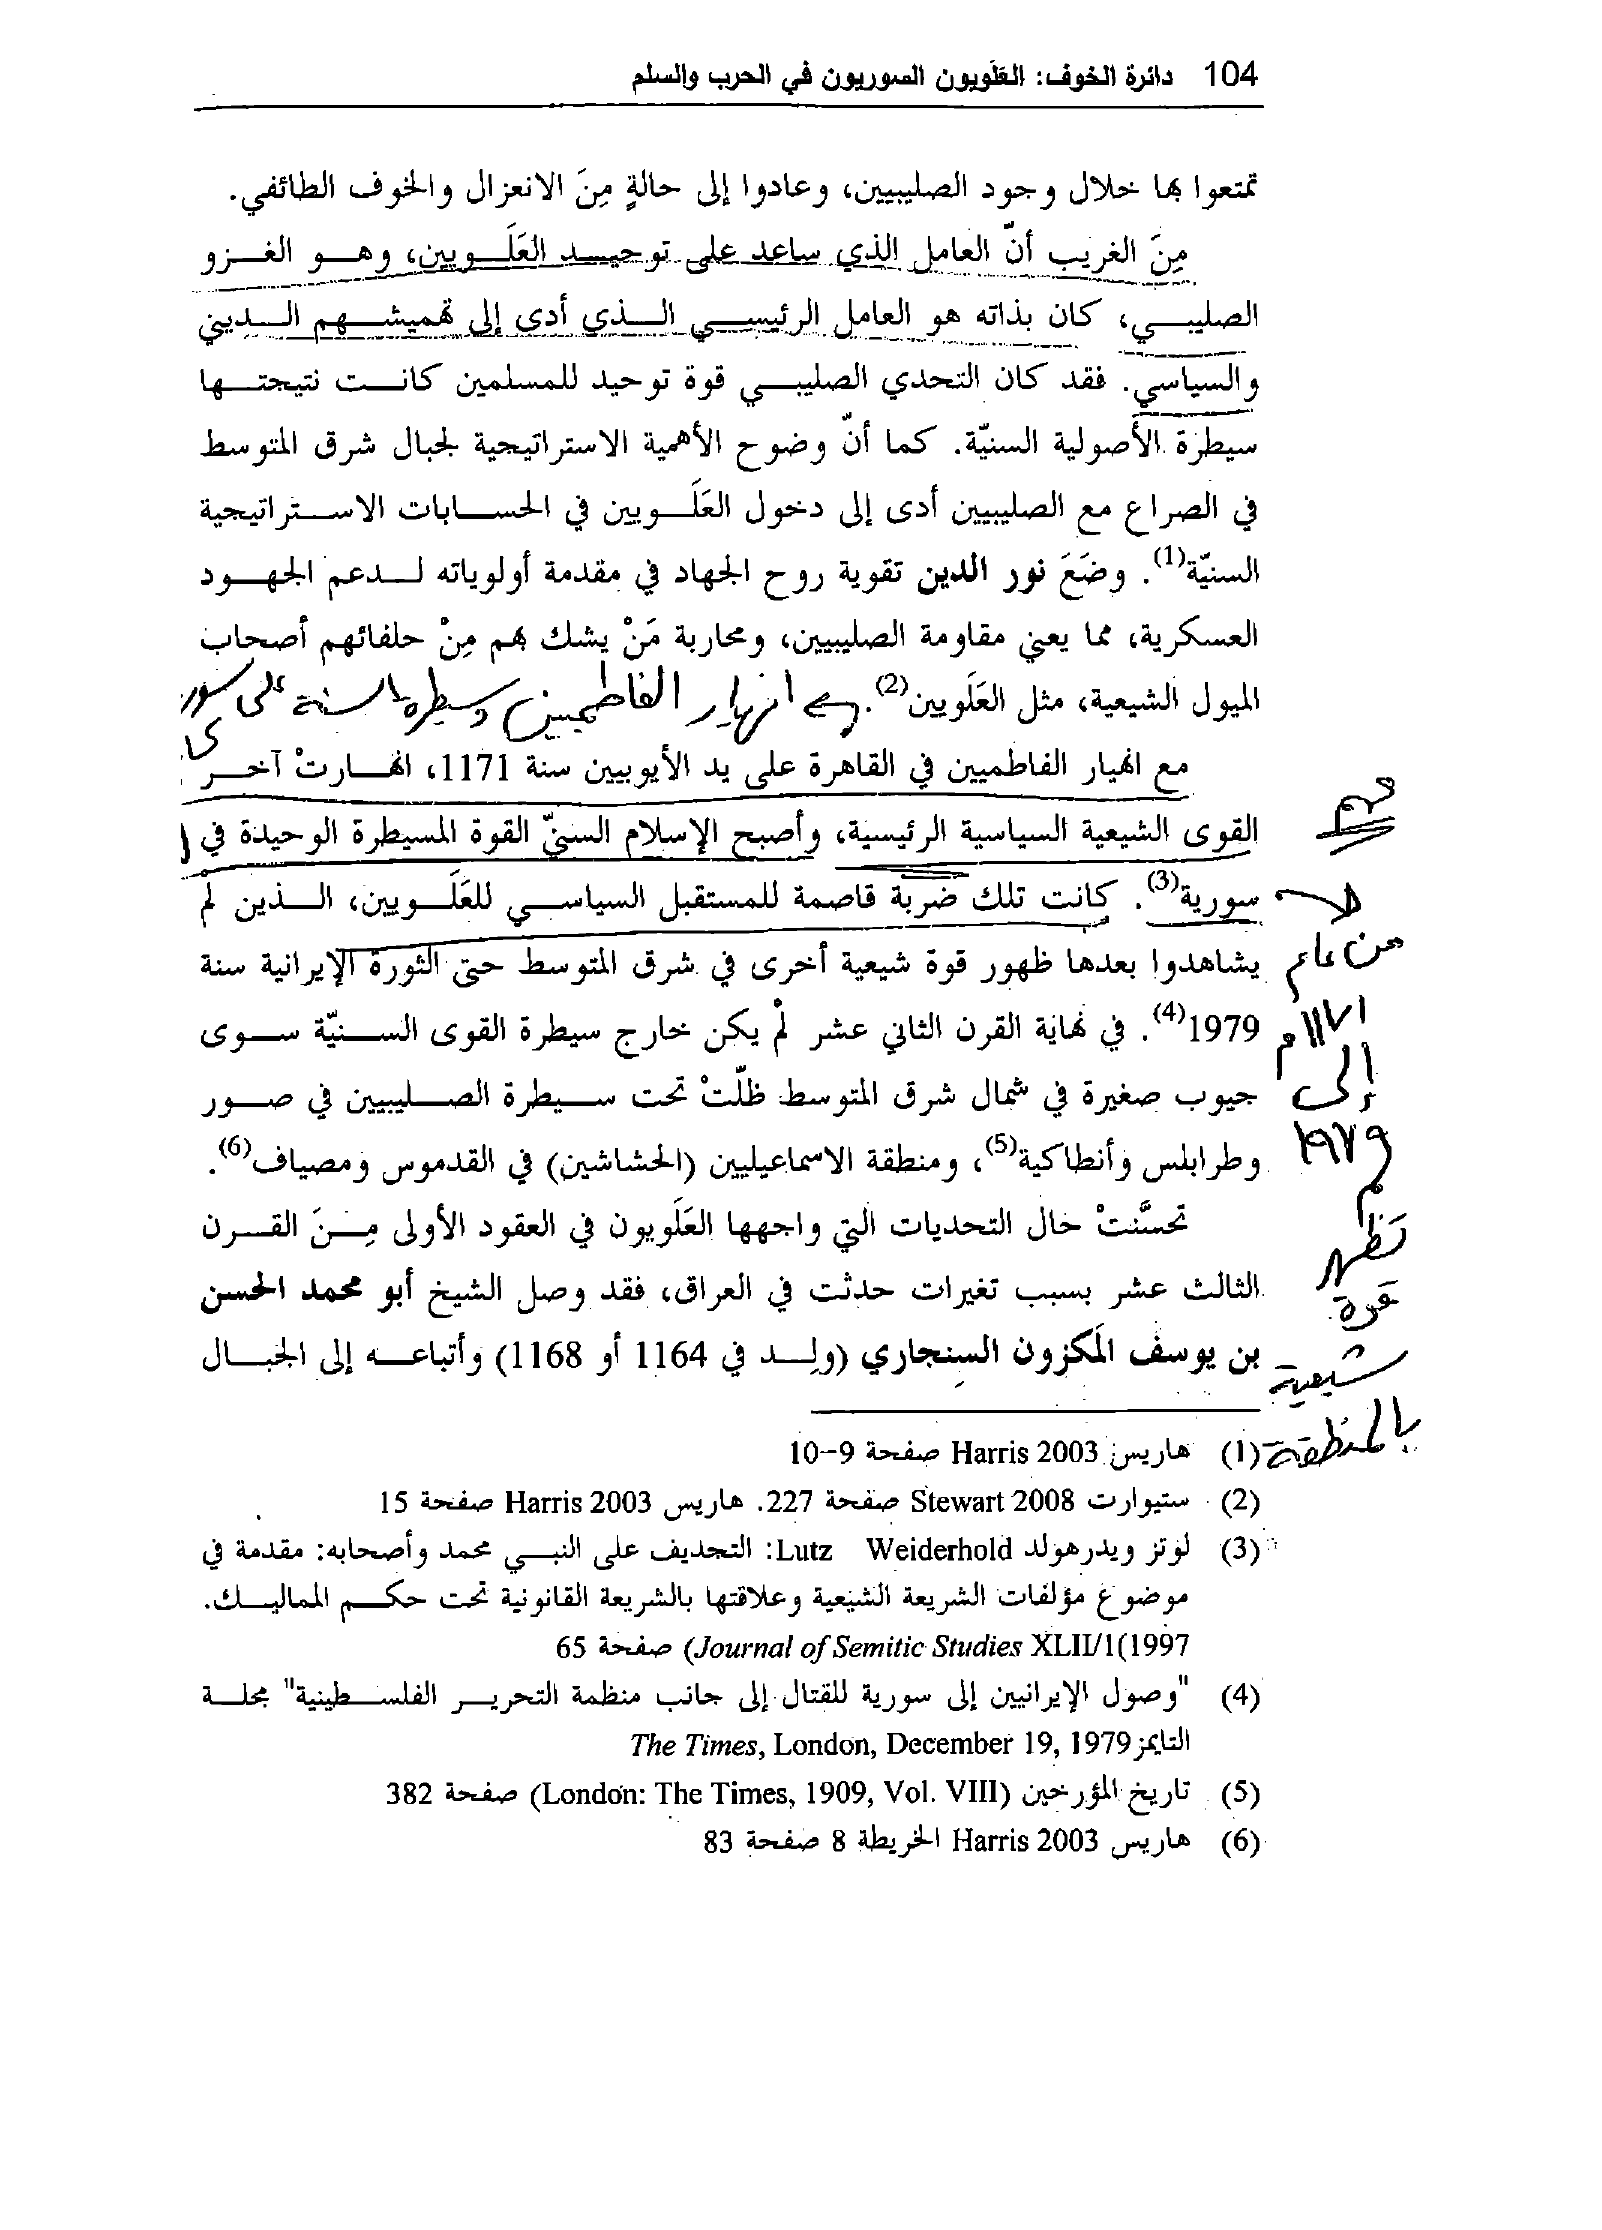 104 دائرة الخوف: العَلَويون السوريون في الحرب والسلم
تمتعوا بها خلال وجود الصليبيين، وعادوا إلى حالةٍ مِنَ الانعزال والخوف الطائفي.
مِنَ الغريب أنّ العامل الذي ساعد على توحيد العَلَويين، وهو الغزو
الصليبي، كان بذاته هو العامل الرئيسي الذي أدى إلى تهميشهم الديني
والسياسي. فقد كان التحدي الصليبي قوة توحيد للمسلمين كانت نتيجتها
سيطرة الأصولية السنيّة. كما أنّ وضوح الأهمية الاستراتيجية لجبال شرق المتوسط
في الصراع مع الصليبيين أدى إلى دخول العَلَويين في الحسابات الاستراتيجية
السنيّة(1). وضَعَ نور الدين تقوية روح الجهاد في مقدمة أولوياته لدعم الجهود
العسكرية، مما يعني مقاومة الصليبيين، ومحاربة مَنْ يشك بهم مِنْ حلفائهم أصحاب
الميول الشيعية، مثل العَلَويين(2). انهيار الفاطميين وسيطرة السنة على سور
يا
مع انهيار الفاطميين في القاهرة على يد الأيوبيين سنة 1171، انهارتْ آخر
القوى الشيعية السياسية الرئيسية، وأصبح الإسلام السنيّ القوة المسيطرة الوحيدة في
مهم
سورية(3). كانت تلك ضربة قاصمة للمستقبل السياسي للعَلَويين، الذين لم
يشاهدوا بعدها ظهور قوة شيعية أخرى في شرق المتوسط حتى الثورة الإيرانية سنة
1979(4). في نهاية القرن الثاني عشر لمْ يكن خارج سيطرة القوى السنيّة سوى
جيوب صغيرة في شمال شرق المتوسط ظلّتْ تحت سيطرة الصليبيين في صور
وطرابلس وأنطاكية(5)، ومنطقة الاسماعيليين (الحشاشين) في القدموس ومصياف(6).
تحسَّنتْ حال التحديات التي واجهها العَلَويون في العقود الأولى مِنَ القرن
الثالث عشر بسبب تغيرات حدثت في العراق، فقد وصل الشيخ أبو محمد الحسن
بن يوسف المَكزون السِنجاري (ولد في 1164 أو 1168) وأتباعه إلى الجبال
لم
من عام
١١٧١م
إلى
١٩٧٩
م
تظهر
قوة
شيعية
بالمنطقة
(1) هاريس Harris 2003 صفحة 9-10
(2) ستيوارت Stewart 2008 صفحة 227. هاريس Harris 2003 صفحة 15
(3) لوتز ويدرهولد Lutz Weiderhold: التجديف على النبي محمد وأصحابه: مقدمة في
موضوع مؤلفات الشريعة الشيعية وعلاقتها بالشريعة القانونية تحت حكم المماليك.
Journal of Semitic Studies XLII/1(1997) صفحة 65
(4) "وصول الإيرانيين إلى سورية للقتال إلى جانب منظمة التحرير الفلسطينية" مجلة
التايمز The Times, London, December 19, 1979
(5) تاريخ المؤرخين (London: The Times, 1909, Vol. VIII) صفحة 382
(6) هاريس Harris 2003 الخريطة 8 صفحة 83